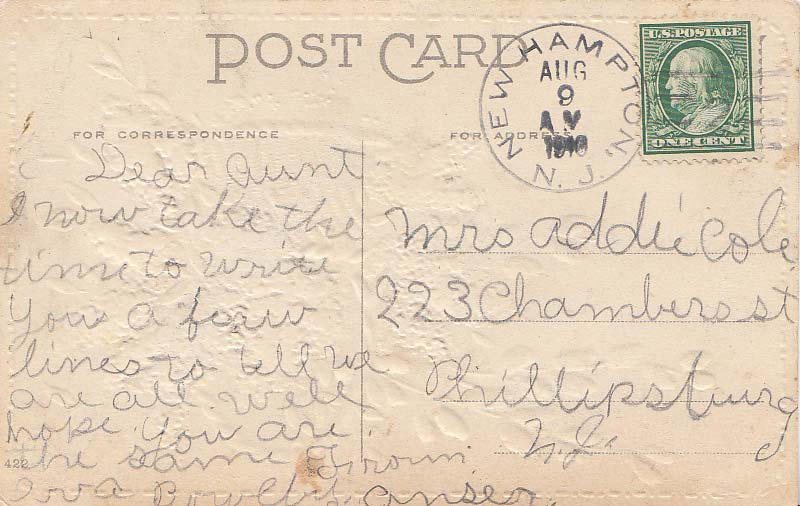 POST CARD
FOR CORRESPONDENCE
FOR ADDRESS
NEW HAMPTON, N.J.
AUG
9
1910
U.S. POSTAGE
ONE CENT
Dear aunt
I now take the
time to write
You a forw
lines to tell we
are all well
hope you are
the same From
Iva Bowlby anser.
422
Mrs Addie Cole
223 Chambers st
Phillipsburg
N.J.